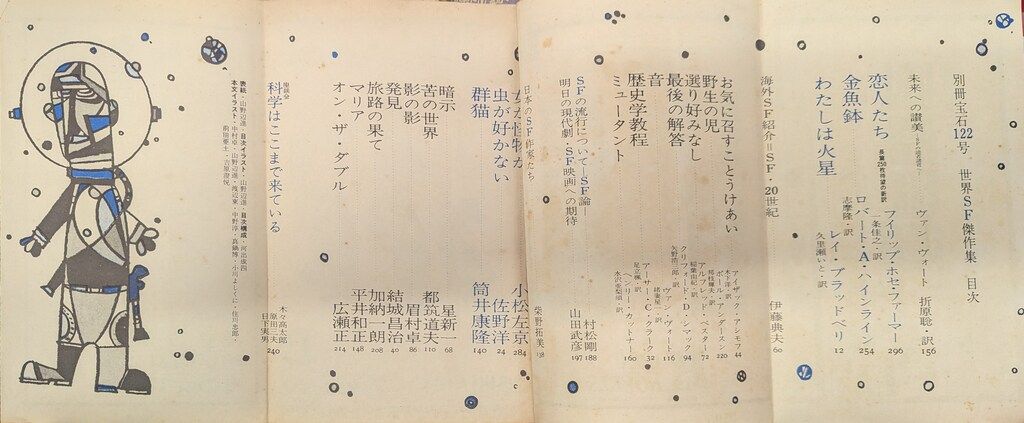 別冊宝石122号 世界SF傑作集 目次
未来への讃美 ヴァン・ヴォート 折原聡・訳 156
恋人たち 長篇250枚待望の新訳 フィリップ・ホセ・ファーマー 一条佳之・訳 296
金魚鉢 ロバート・A・ハインライン 志摩隆・訳 254
わたしは火星 レイ・ブラッドベリ 久里瀬いと・訳 12
海外SF紹介=SF・20世紀 伊藤典夫 60
お気に召すことうけあい アイザック・アシモフ 44
野生の児 ポール・アンダースン 220
選り好みなし アルフレッド・ベスター 72
最後の解答 クリフォード・D・シマック 94
音 ヴァン・ヴォート 116
歴史学教程 アーサー・C・クラーク 32
ミュータント ヘンリー・カットナー 160
SFの流行について―SF論― 村松剛 188
明日の現代劇・SF映画への期待 山田武彦 197
日本のSF作家たち 柴野拓美 138
女か怪物か 小松左京 284
虫が好かない 佐野洋 24
群猫 筒井康隆 140
暗示 星新一 68
苦の世界 都筑道夫 110
影の影 眉村卓 86
発見 結城昌治 40
旅路の果て 加納一朗 208
マリア 平井和正 148
オン・ザ・ダブル 広瀬正 214
座談会
科学はここまで来ている 木々高太郎 原田三夫 日下実男 240
表紙・山野辺進・目次イラスト・山野辺進・目次構成・河出成四